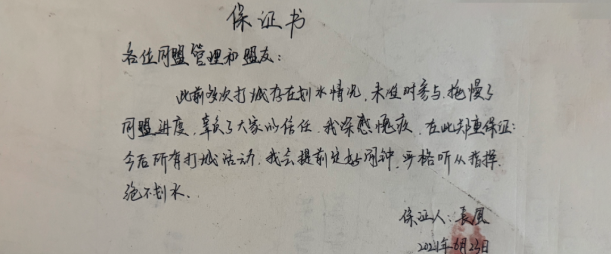 保证书
各位同盟管理和盟友：
此前多次打城存在划水情况，未及时参与，拖慢了
同盟进度，辜负了大家的信任，我深感愧疚，在此郑重保证：
今后所有打城活动，我会提前定好闹钟，严格听从指挥，
绝不划水。
保证人：长风
2021年6月23日